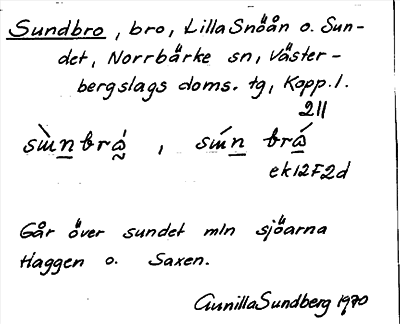 Sundbro, bro, Lilla Snöån o. Sun-
det, Norrbärke sn, Väster-
bergslags doms. tg, Kopp. l.
211
sùn̲brå̀, sún̲ brǻ
ek12F2d
Går över sundet mln sjöarna
Haggen o. Saxen.
Gunilla Sundberg 1970